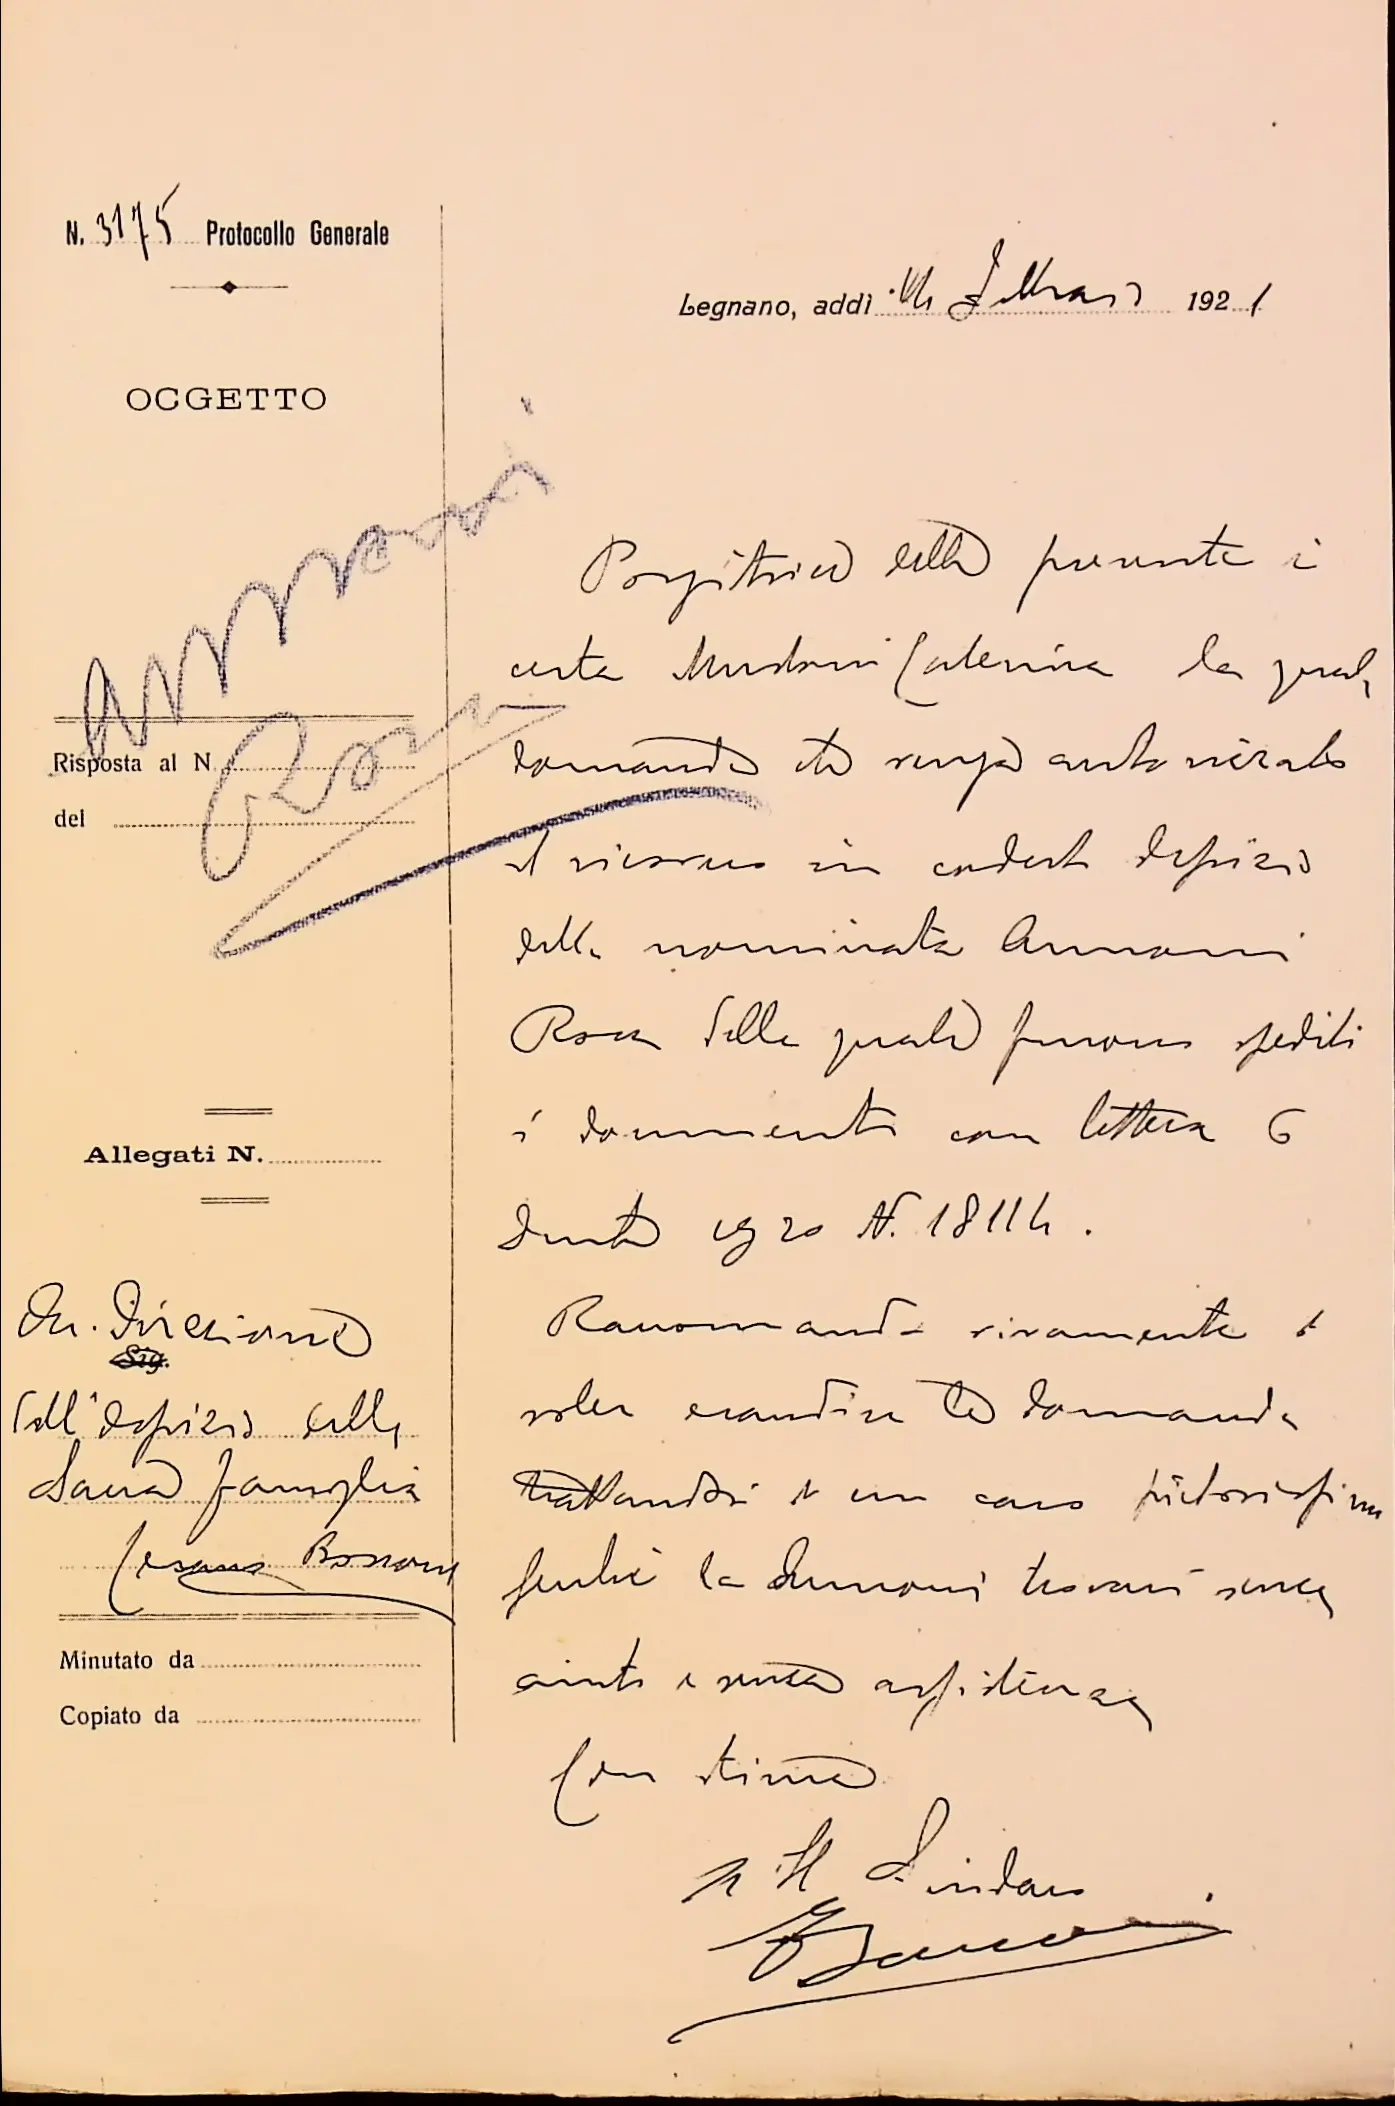 N. 3175 Protocollo Generale
Legnano, addì 14 Febbraio 1921
OGGETTO
Annoni
Rosa
Risposta al N
del
Allegati N.
On. Direzione
Sig.
dell'Ospizio della
Sacra Famiglia
Cesano Boscone
Minutato da
Copiato da
Porgitrice della presente è
certa Caterina la quale
domanda che venga autorizzato
il ricovero in codesto Ospizio
della nominata Annoni
Rosa della quale furono spediti
i documenti con lettera 6
1920 N. 18114.
Raccomando vivamente di
voler esaudire la domanda
trattandosi di un caso pietosissimo
perchè la Annoni trovasi senza
aiuto e senza assistenza
Con stima
Il Sindaco